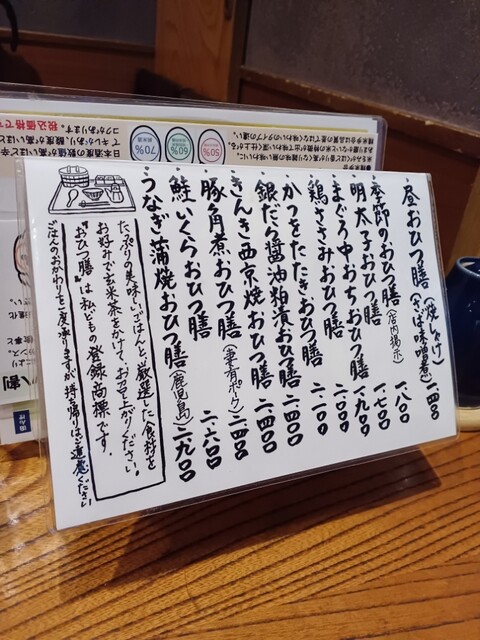 昼おひつ膳（焼しゃけ）（さば味噌煮）一、四〇〇
季節のおひつ膳（店内掲示）一、八〇〇
明太子おひつ膳 一、七〇〇
まぐろ中おちおひつ膳 一、九〇〇
鶏ささみおひつ膳 二、一〇〇
かつをたたきおひつ膳 二、一〇〇
銀だら醤油粕漬おひつ膳 二、四〇〇
きんき西京焼おひつ膳 二、四〇〇
豚角煮おひつ膳
鮭いくらおひつ膳 二、六〇〇
うなぎ蒲焼おひつ膳（鹿児島）二、九〇〇
たっぷりの美味しいごはんと、厳選した食材を
お好みで玄米茶をかけて、お召し上がりください。
"おひつ膳"は私どもの登録商標です。
ごはんのおかわりを一度承りますが持ち帰りはご遠慮ください
日本酒度の数値が高いほど辛
コクがあります。
税込価格で
70%
60%
50%